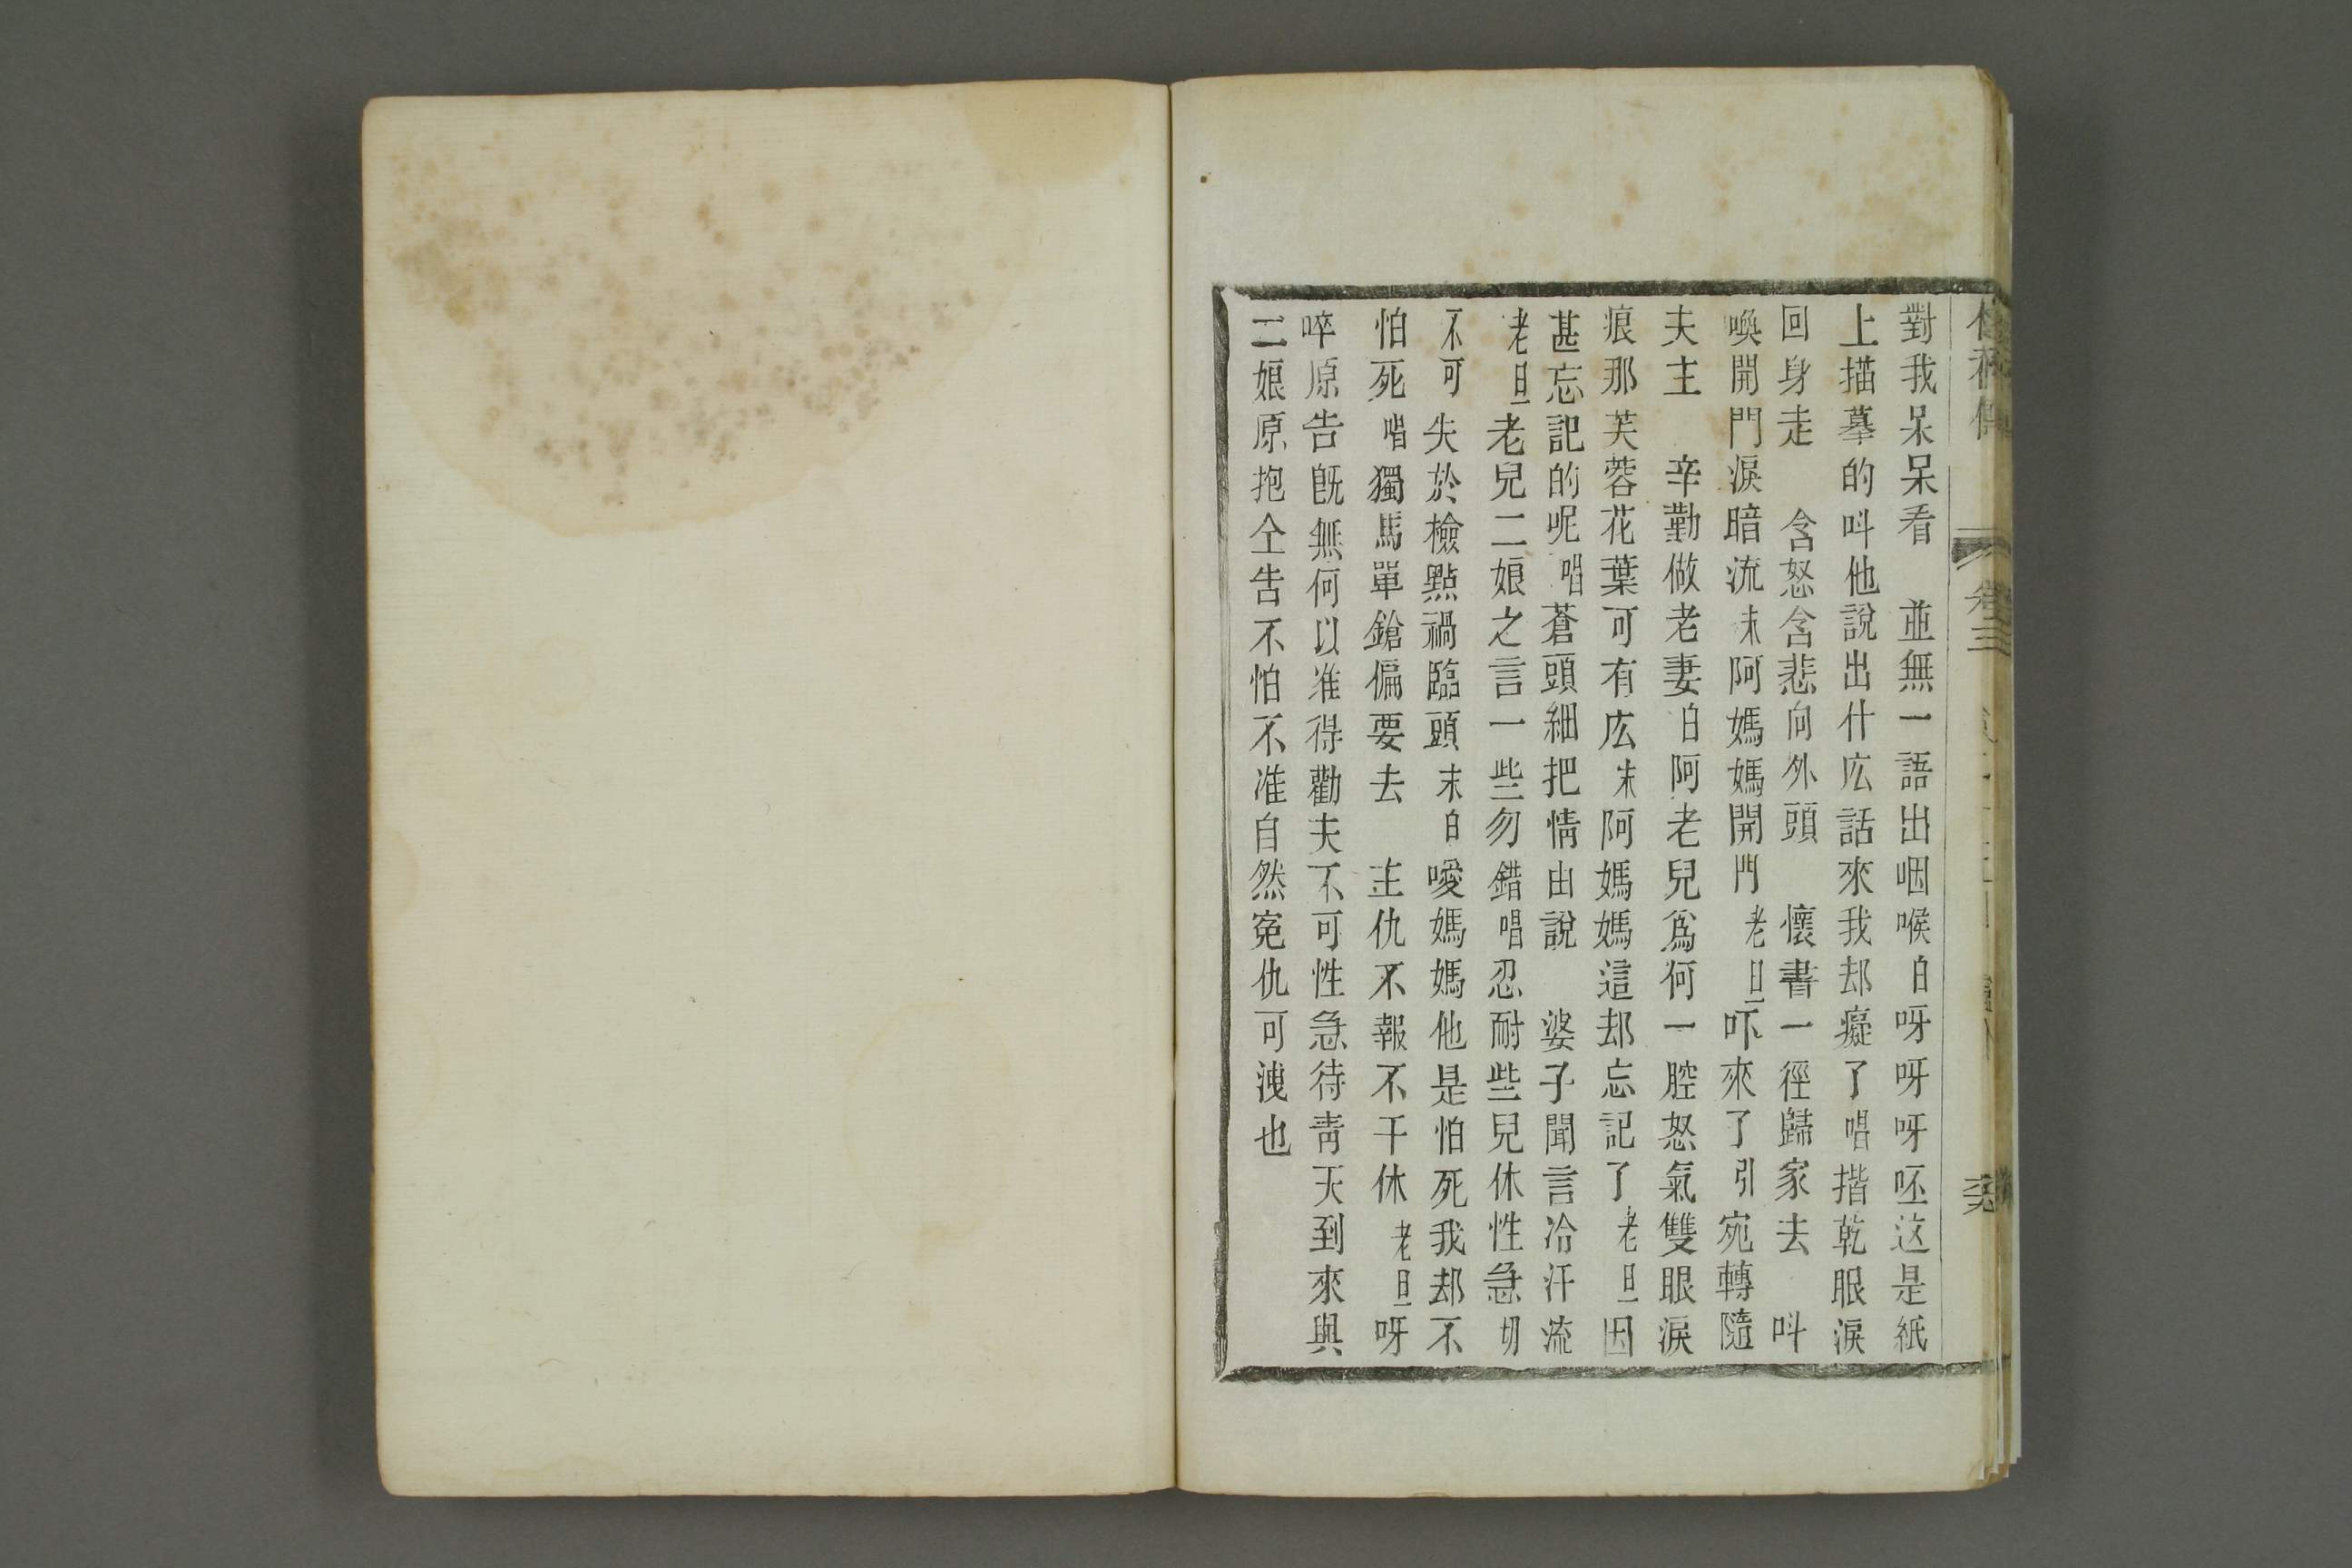 對我呆呆看　並無一語出咽喉白呀呀呀呸这是紙
上描摹的呌他說出什庅話來我却癡了唱揩乾眼淚
回身走　含怒含悲向外頭　懷書一徑歸家去　呌
喚開門淚暗流末阿媽媽開門老旦吓來了引宛轉隨
夫主　辛勤做老妻白阿老兒爲何一腔怒氣雙眼淚
痕那芙蓉花葉可有庅末阿媽媽這却忘記了老旦因
甚忘記的呢唱蒼頭細把情由說　婆子聞言冷汗流
老旦老兒二娘之言一些勿錯唱忍耐些兒休性急切
不可失於檢點禍臨頭末白噯媽媽他是怕死我却不
怕死唱獨馬單鎗偏要去　主仇不報不干休老旦呀
啐原告旣無何以准得勸夫不可性急待靑天到來與
二娘原抱仝告不怕不准自然寃仇可洩也
卷三